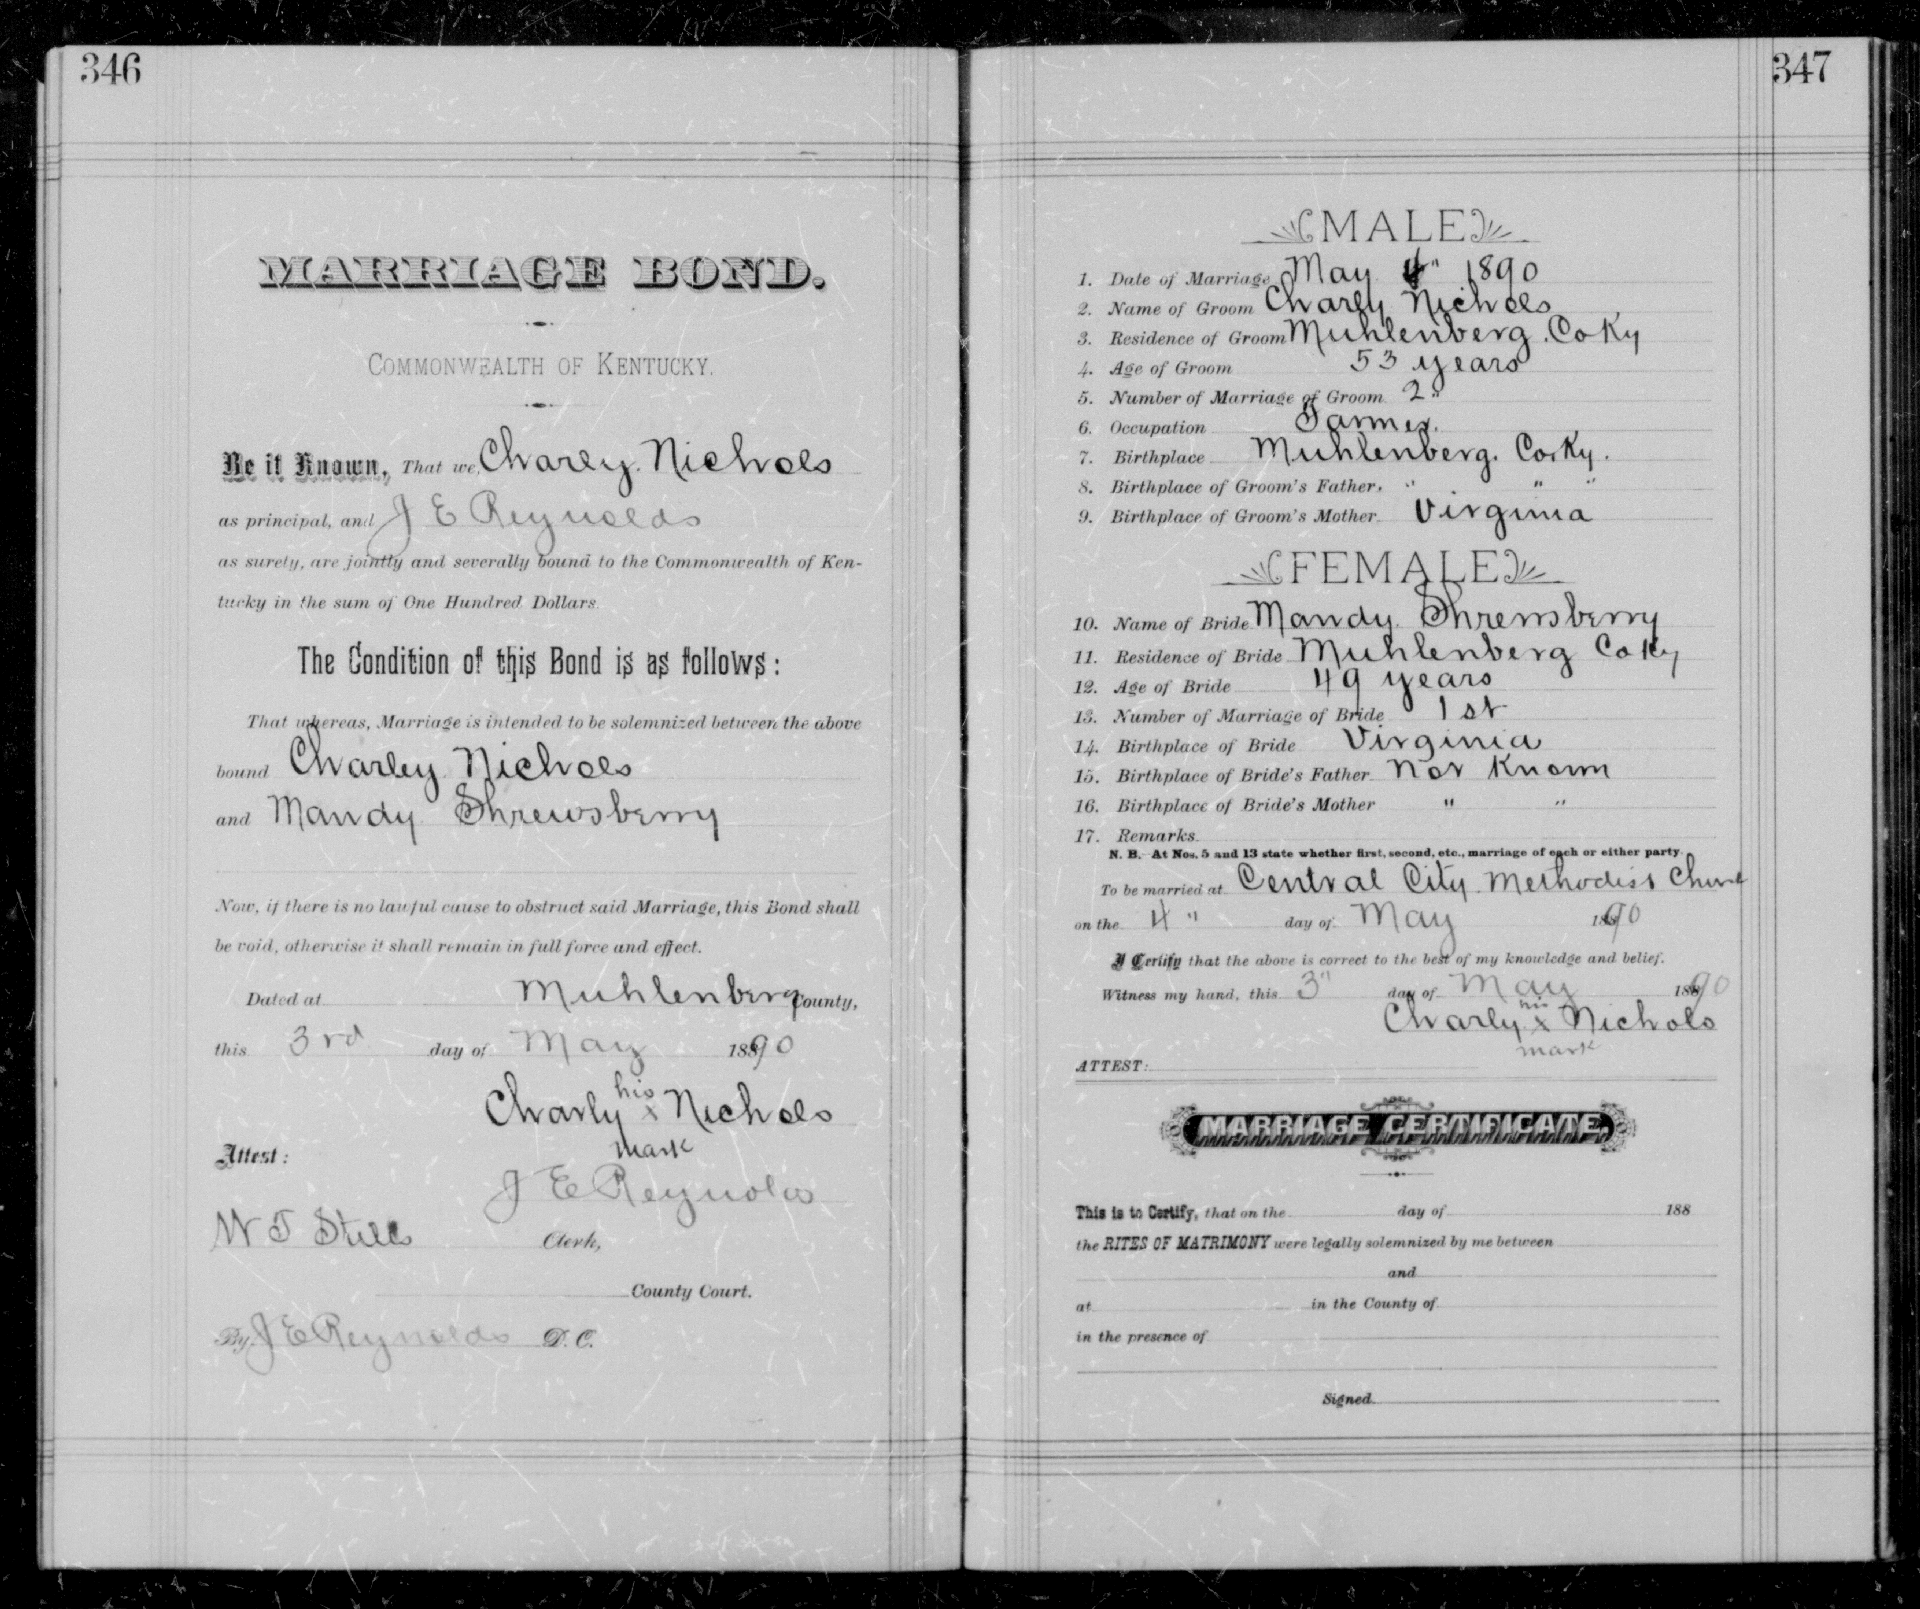 346
MARRIAGE BOND.
COMMONWEALTH OF KENTUCKY.
Be it Known, That we, Charley Nichols
as principal, and J E Reynolds
as surety, are jointly and severally bound to the Commonwealth of Ken-
tucky in the sum of One Hundred Dollars.
The Condition of this Bond is as follows:
That whereas, Marriage is intended to be solemnized between the above
bound Charley Nichols
and Mandy Shrewsberry
Now, if there is no lawful cause to obstruct said Marriage, this Bond shall
be void, otherwise it shall remain in full force and effect.
Dated at Muhlenberg County,
this 3rd day of May 1890
his
Charly x Nichols
mark
Attest:
J E Reynolds
W T Stiles Clerk,
County Court.
By J E Reynolds D. C.
347
MALE
1. Date of Marriage May 4" 1890
2. Name of Groom Charly Nichols
3. Residence of Groom Muhlenberg Co Ky
4. Age of Groom 53 years
5. Number of Marriage of Groom 2"
6. Occupation Farmer.
7. Birthplace Muhlenberg. Co. Ky.
8. Birthplace of Groom's Father. " " "
9. Birthplace of Groom's Mother Virginia
FEMALE
10. Name of Bride Mandy Shrewsberry
11. Residence of Bride Muhlenberg Co Ky
12. Age of Bride 49 years
13. Number of Marriage of Bride 1st
14. Birthplace of Bride Virginia
15. Birthplace of Bride's Father Not Known
16. Birthplace of Bride's Mother " "
17. Remarks
N. B. At Nos. 5 and 13 state whether first, second, etc., marriage of each or either party.
To be married at Central City Methodist Church
on the 4" day of May 1890
I Certify that the above is correct to the best of my knowledge and belief.
Witness my hand, this 3" day of May 1890
his
Charly x Nichols
mark
ATTEST:
MARRIAGE CERTIFICATE.
This is to Certify, that on the day of 188
the RITES OF MATRIMONY were legally solemnized by me between
and
at in the County of
in the presence of
Signed